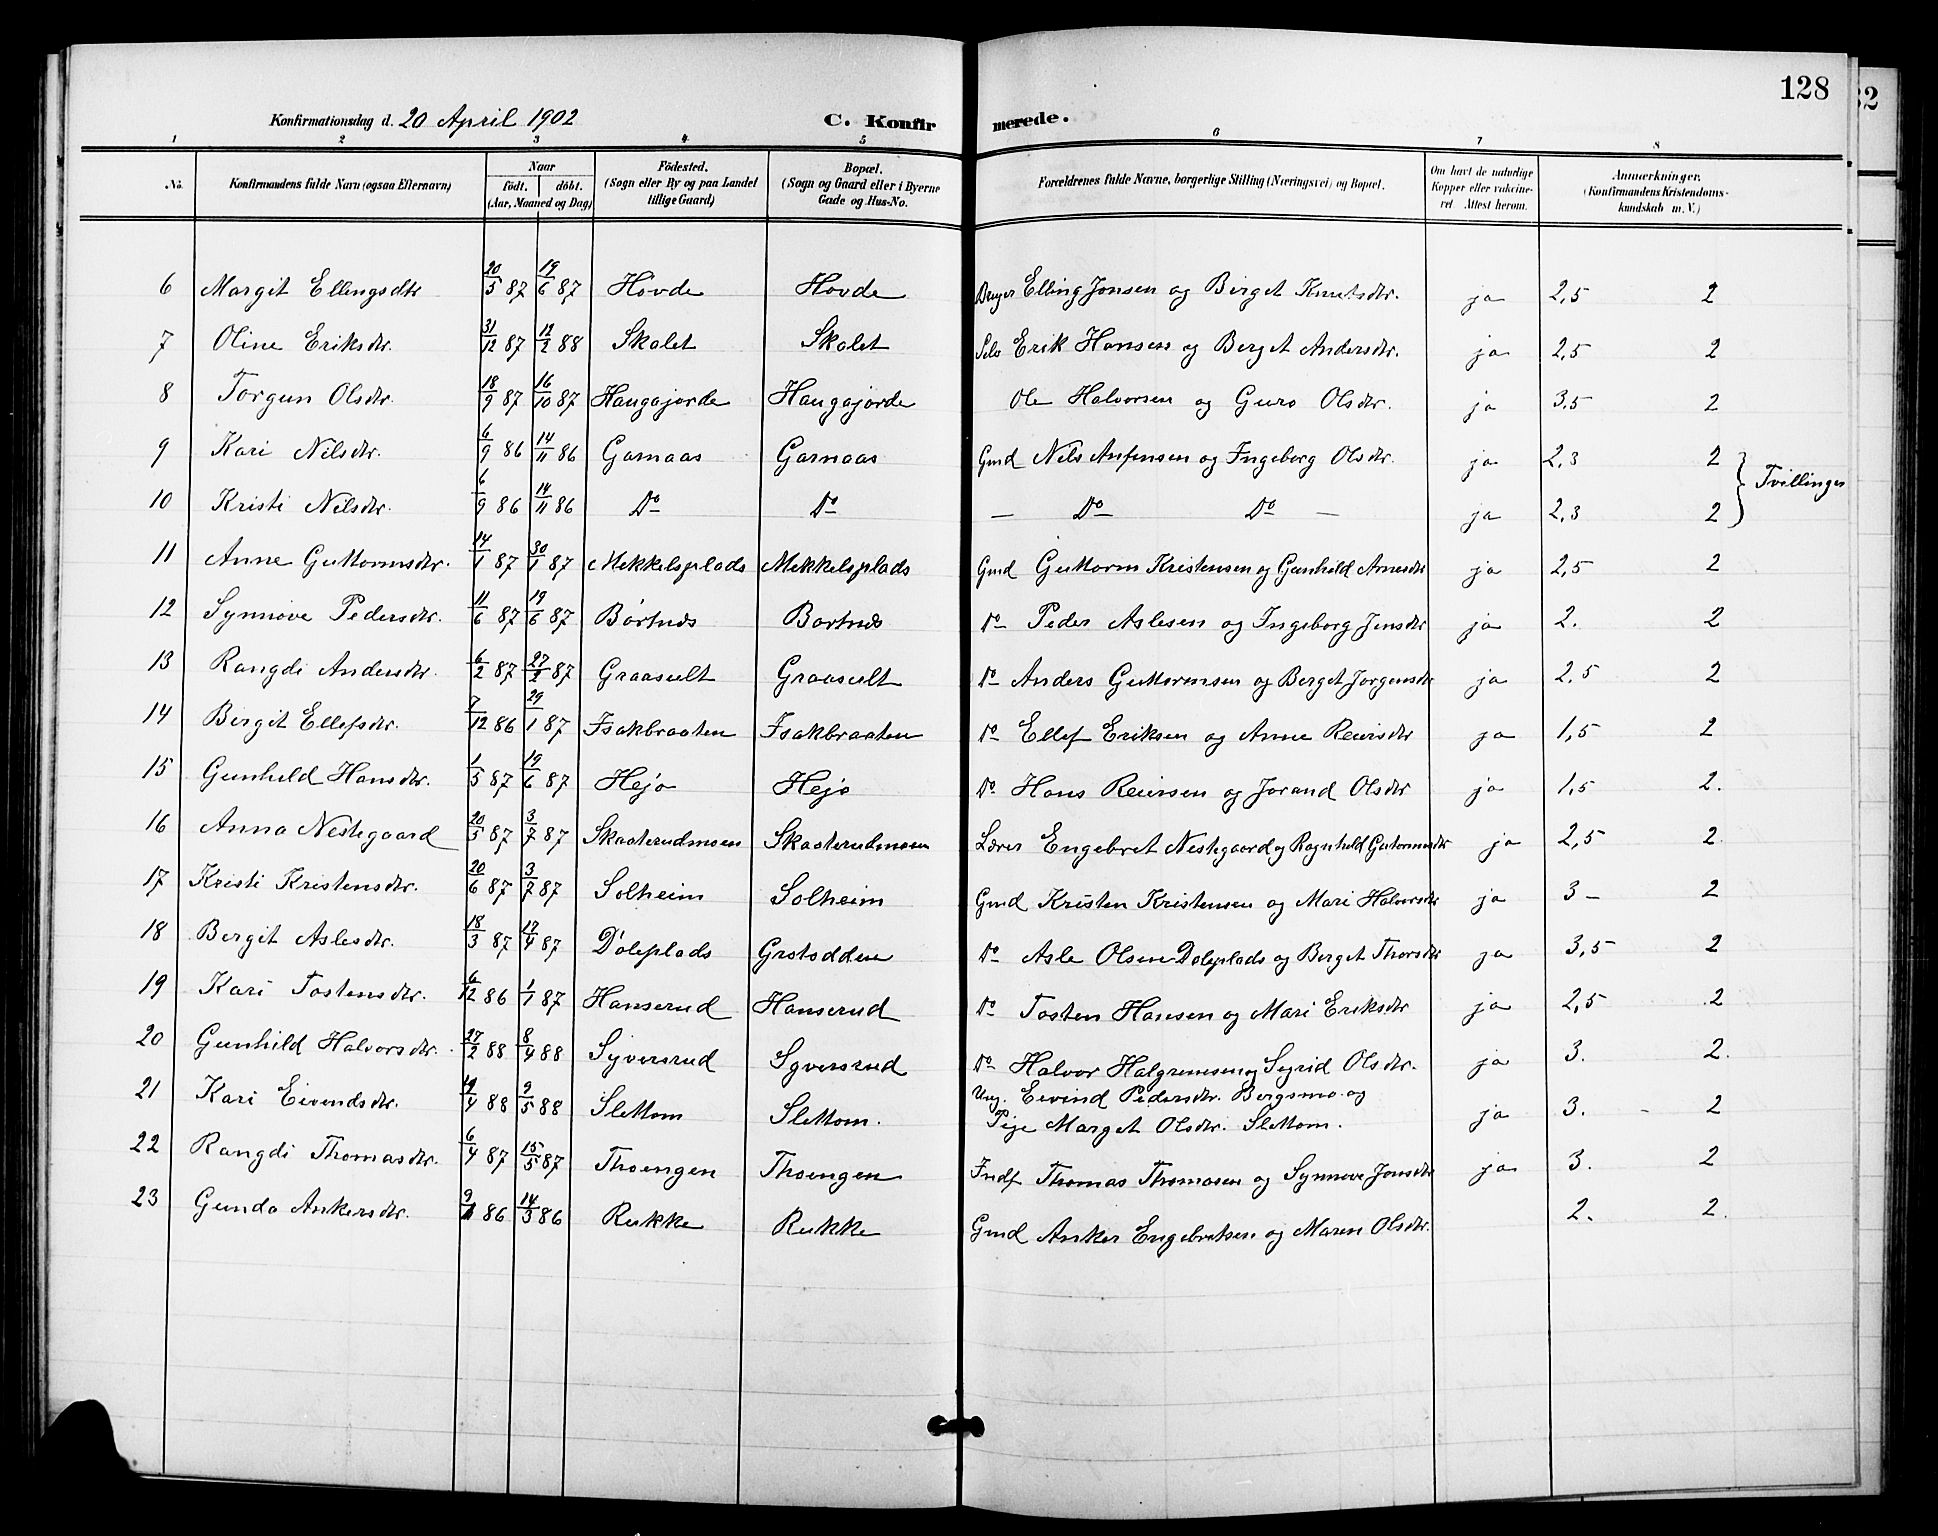 128
32
Konfirmationsdag d. 20 April 1902 C. Konfirmerede.
1 2 3 4 5 6 7 8
No. Konfirmandens fulde Navn (ogsaa Efternavn) Naar födt. döbt. (Aar, Maaned og Dag) Födested. (Sogn eller By og paa Landet tillige Gaard) Bopæl. (Sogn og Gaard eller i Byerne Gade og Hus-No. Forældrenes fulde Navne, borgerlige Stilling (Næringsvei) og Bopæl. Om havt de naturlige Kopper eller vaccineret. Attest herom. Anmærkninger. (Konfirmandens Kristendomskundskab m. V.)
6 Margit Ellingsdtr 20/5 87 19/6 87 Hovde Hovde Elling Jonsen og Birget Knutsdtr. ja 2,5 2
7 Oline Eriksdtr. 31/12 87 12/2 88 Skalet Skalet Selv Erik Hansen og Berget Andersdtr. ja 2,5 2
8 Torgun Olsdtr. 18/9 87 16/10 87 Haugajorde Haugajorde Ole Halvorsen og Guro Olsdtr. ja 3,5 2
9 Kari Nilsdtr. 6/9 86 14/11 86 Garnaas Garnaas Gmd Nils Anfinsen og Ingeborg Olsdtr. ja 2,3 2
Tvillinger
10 Kristi Nilsdtr. 6/9 86 14/11 86 Do Do — Do Do — ja 2,3 2
11 Anne Guttormsdtr. 14/1 87 30/1 87 Mekkelsplads Mekkelsplads Gmd Guttorm Kristensen og Gunhild Arnesdtr ja 2,5 2
12 Synnøve Pedersdtr. 11/6 87 19/6 87 Børtnes Bortnes Do Peder Aslesen og Ingeborg Jensdtr ja 2. 2
13 Rangdi Andersdtr. 6/2 87 27/2 87 Graasult Graasult Do Anders Guttormsen og Berget Jorgensdtr ja 2,5 2
14 Birgit Ellefsdtr. 7/12 86 29/1 87 Isakbraaten Isakbraaten Do Ellef Eriksen og Anne Reiersdtr ja 1,5 2
15 Gunhild Hansdtr. 1/5 87 19/6 87 Hejo Hejo Do Hans Reiersen og Jorand Olsdtr ja 1,5 2.
16 Anna Nestegaard 20/5 87 3/7 87 Skaaterudmoen Skaaterudmoen Lærer Engebret Nestegaard og Ragnhild Guttormsdtr ja 2,5 2
17 Kristi Kristensdtr. 20/6 87 3/7 87 Solheim Solheim Gmd Kristen Kristensen og Mari Halvorsdtr ja 3 – 2
18 Bergit Aslesdtr. 18/3 87 17/4 87 Doleplads Grotodden Do Asle Olsen Doleplads og Berget Thorsdtr ja 3,5 2
19 Kari Tostensdtr. 6/12 86 1/1 87 Hanserud Hanserud Do Tosten Hansen og Mari Eriksdtr ja 2,5 2
20 Gunhild Halvorsdtr. 27/2 88 8/4 88 Syversrud Syversrud Do Halvor Halgrimsen og Sigrid Olsdtr. ja 3. 2.
21 Kari Eivendsdtr. 19/4 88 9/5 88 Slettom Slettom. Ung. Eivind Pedersdtr. Bergsmo og
Pige Marget Olsdtr. Slettom. ja 3. 2
22 Rangdi Thomasdtr. 6/4 87 15/5 87 Thoengen Thoengen Indf Thomas Thomasen og Synnøve Jonsdtr ja 3. 2
23 Gunda Ankersdtr. 86 14/3 86 Rukke Rukke Gmd Anker Engebretsen og Maren Olsdtr. 2. 2.